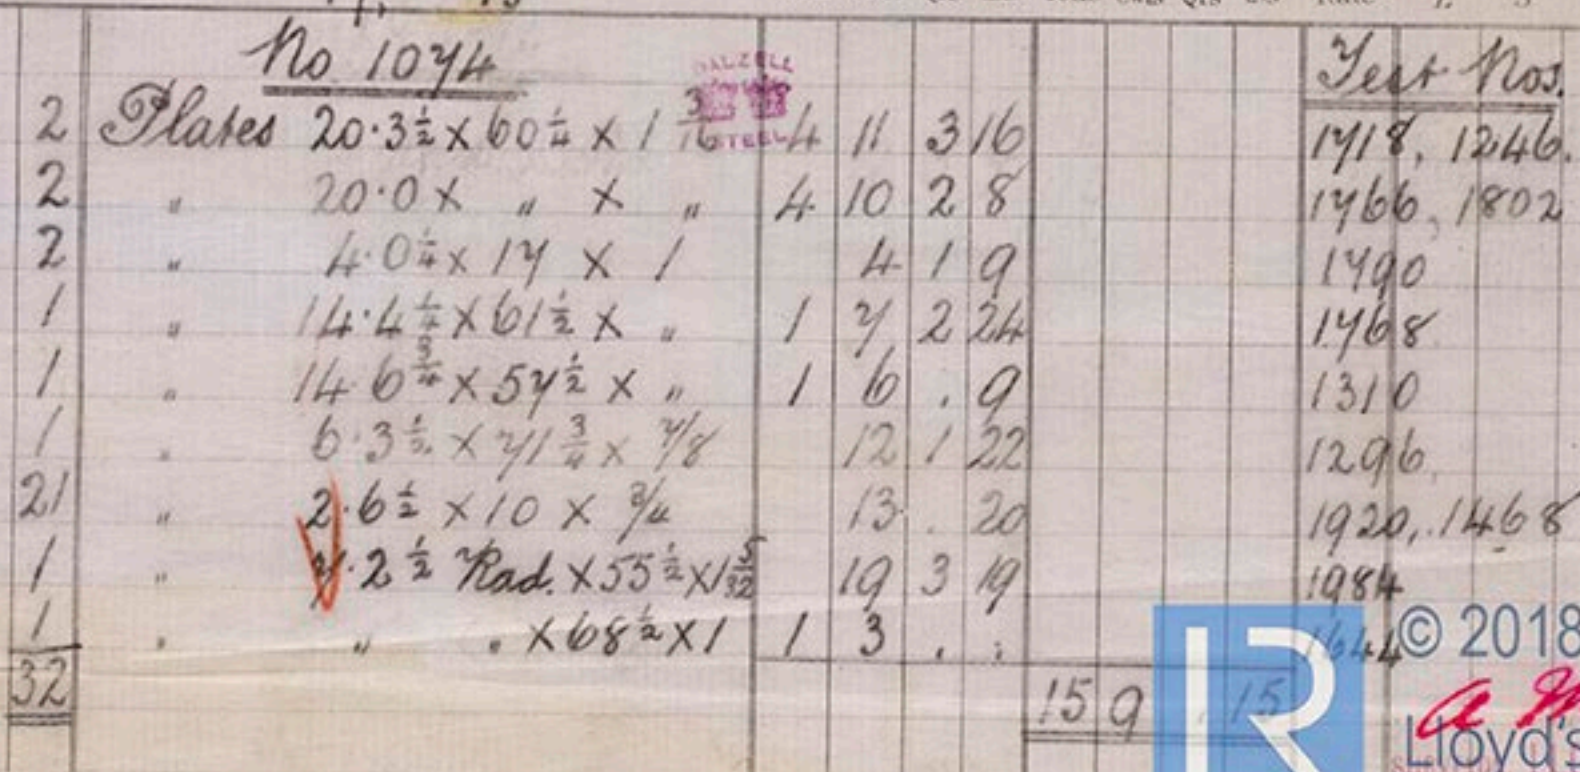 No 1074
DALZELL
STEEL
Test Nos.
2 Plates 20.3½ x 60¼ x 1 3/16 4 11 3 16 1718, 1246.
2 " 20.0 x " x " 4 10 2 8 1766, 1802
2 " 4.0¼ x 17 x 1 4 1 9 1790
1 " 14.4¼ x 61½ x " 1 7 2 24 1768
1 " 14.6¾ x 57½ x " 1 6 . 9 1310
1 " 6.3½ x 71¾ x 7/8 12 1 22 1296
21 " 2.6½ x 10 x 3/4 13 . 20 1920, 1468
1 " 7.2½ Rad. x 55½ x 1 5/32 19 3 19 1984
1 " " " x 68½ x 1 1 3 . . 1644
32 15 9 . 15
© 2018
LR
Lloyd's